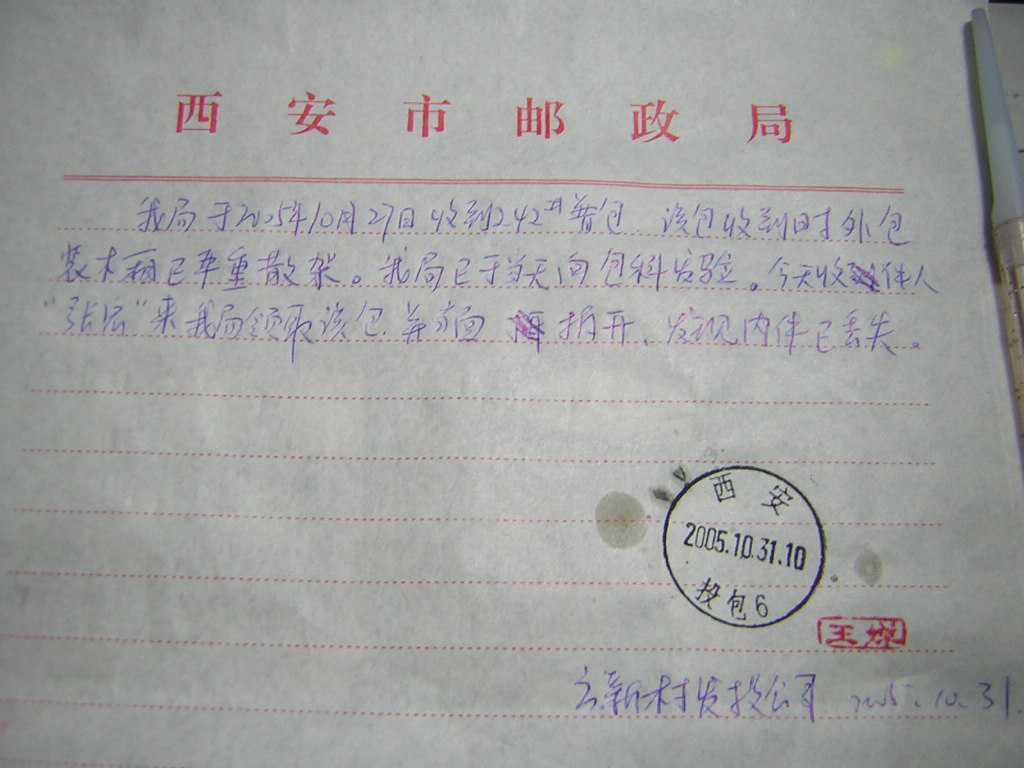 西安市邮政局
我局于2005年10月27日收到242 普包 该包收到时外包
装木箱已严重散架。我局已于当天向包科发验。今天收件人
"张宏"来我局领取该包并当面 拆开、发现内件已丢失。
西安
2005.10.31.10
投包6
王
立新村发投公司 2005.10.31.